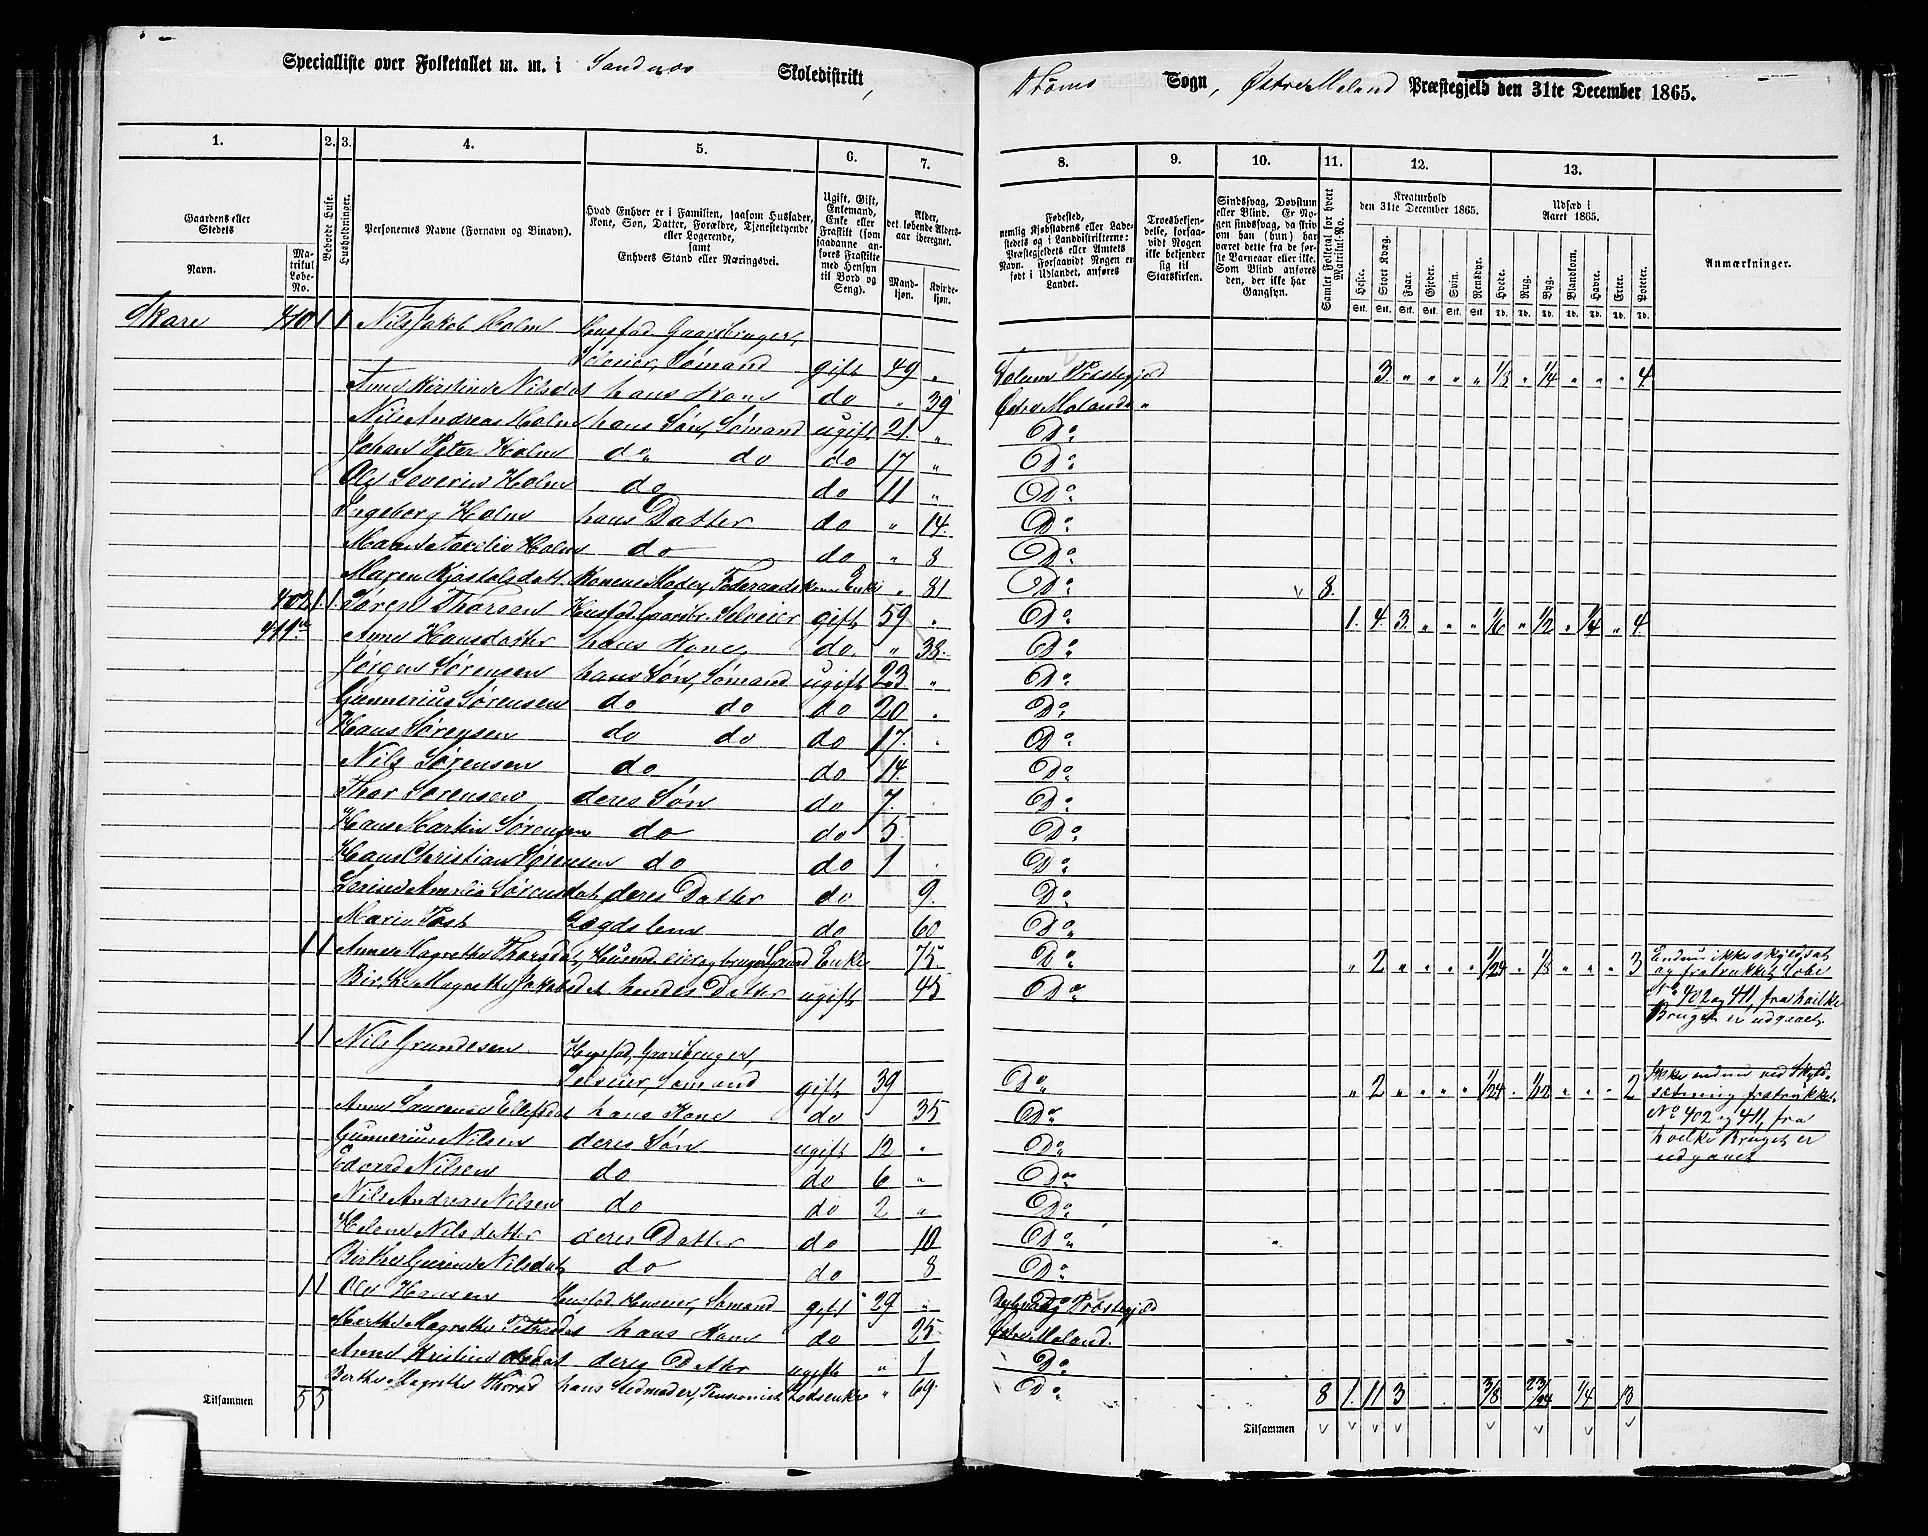 Specialliste over Folketallet m. m. i Sandnæs Skoledistrikt, Støens Sogn, Østre Moland Præstegjeld den 31te December 1865.
1. 2. 3. 4. 5. 6. 7. 8. 9. 10. 11. 12. 13.
Gaardens eller Stedets Navn. Matrikul Løbe-No.
Beboede Huse.
Husholdninger.
Personernes Navne (Fornavn og Binavn).
Hvad Enhver er i Familien, saasom Husfader, Kone, Søn, Datter, Forældre, Tjenestetyende eller Logerende, samt Enhvers Stand eller Næringsvei.
Ugift, Gift, Enkemand, Enke eller Fraskilt (som saadanne anføres Fraskilte med Hensyn til Bord og Seng).
Alder, det løbende Aldersaar iberegnet. Mandkjøn. Kvindekjøn.
Fødested, nemlig Kjøbstadens eller Ladestedets og i Landdistrikterne: Præstegjeldets eller Amtets Navn. Forsaavidt Nogen er født i Udlandet, anføres Landet.
Troesbekjendelse, forsaavidt Nogen ikke bekjender sig til Statskirken.
Sindssvag, Døvstum eller Blind. Er Nogen sindssvag, da skrives om han (hun) har været dette fra de første Barneaar eller ikke. Som Blind anføres den, der ikke har Gangsyn.
Samlet Folketal for hvert Matrikul-No.
Kreaturhold den 31te December 1865. Heste. Stort Kvæg. Faar. Gjeder. Svin. Rensdyr.
Udsæd i Aaret 1865. Hvede. Rug. Byg. Blandkorn. Havre. Erter. Poteter.
Anmærkninger.
Skare 410 1 1 Nils Jakob Holm Husfad. Gaardbruger,
Selveier, Sømand gift 49 „ Præstegjæld 3 „ „ „ „ 1/8 „ 1/4 „ „ „ 4
Anne Kirstine Nilsdat hans Kone do „ 39 Østre Moland „
Nils Andreas Holm hans Søn, Sømand ugift 21 „ Do
Johan Peter Holm do do do 17 „ Do
Ole Severin Holm do do 11 „ Do
Ingeborg Holm hans Datter do „ 14 Do
Holm do do „ 8 Do
Maren Kjøstolsdatt Konens Moder, Føderaadskone Enke „ 81 Do 8
402 1 1 Søren Thorsen Husfad. Gaardbr. Selveier gift 59 „ Do 1 4 3 „ „ „ 1/6 „ 1/2 „ 1/4 „ 4
411 Anne Hansdatter hans Kone do „ 38 Do
Jørgen Sørensen hans Søn, Sømand ugift 23 „ Do
Gunnerius Sørensen do do do 20 Do
Hans Sørensen do do do 17 Do
Nils Sørensen do do 14 Do
Thor Sørensen deres Søn do 7 Do
Hans Martin Sørensen do do 5 Do
Hans Christian Sørensen do do 1 Do
Amalia Sørensdat deres Datter do 9 Do
Maria Post Lægdslem do 60 Do
1 1 Anne Magrethe Thorsdat, Enke 75 Do „ 2 „ „ „ „ 1/24 „ 1/8 „ „ „ 3 Endnu ikke skyldsat
Magrethe Jakobsdat hendes Datter ugift 45 Do og fratrukket Løbe
No 402 og 411, fra hvilke
Bruget er udgaaet.
1 1 Nils Grundesen Husfad, Gaardbruger,
Selveier, Sømand gift 39 Do „ 2 „ „ „ „ 1/24 „ 1/12 „ „ „ 2 Ikke endnu ved Skyld-
Anne Laurense Ellefsdat hans Kone do 35 Do sætning fratrukket
Gunnerius Nilsen deres Søn ugift 12 Do No 402 og 411, fra
Edvard Nilsen do do 6 „ Do hvilke Bruget er
Nils Andreas Nilsen do do 2 „ Do udgaaet
Helene Nilsdatter deres Datter do 10 Do
Nilsdat do do 8 Do
1 1 Ole Hansen Husfad, Huseier, Sømand gift 29 „ Præstegjæld
Marthe Magrethe hans Kone do 25 Østre Moland.
Anne Kristine deres Datter ugift „ 1 Do
Berthe Magrethe hans Stedmoder, Pensionist Lodsenke „ 69 Do
Tilsammen 5 5 Tilsammen 8 1 11 3 3/8 23/24 1/4 13